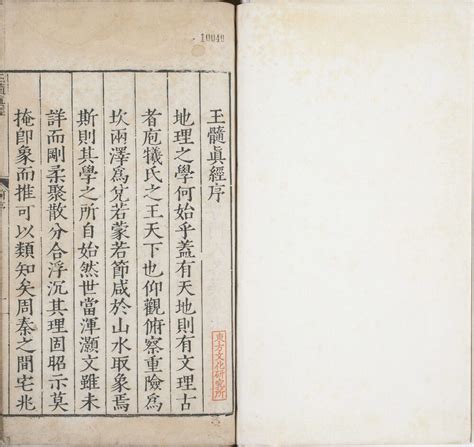 10040
王髓眞經序
地理之學何始乎蓋有天地則有文理古
者庖犧氏之王天下也仰觀俯察重險爲
坎兩澤爲兌若蒙若節咸於山水取象焉
斯則其學之所自始然世當渾灝文雖未
詳而剛柔聚散分合浮沉其理固昭示莫
掩卽象而推可以類知矣周秦之間宅兆
東方文化研究所